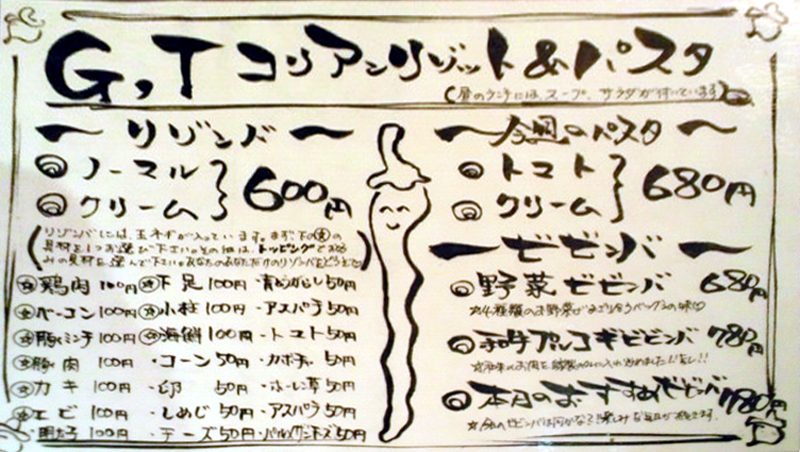 G,T コリアンリゾット&パスタ
(昼のランチには、スープ、サラダが付いています)
〜 リゾンバ 〜
ノーマル
クリーム
600円
リゾンバには、玉ネギが入っています。まず下の☆の
具材を1つお選び下さい。その他は、トッピングでお好
みの具材を選んで下さい。あなたのあなただけのリゾンバをどうぞ
☆鶏肉 100円 ☆下足 100円 ・青とうがらし 50円
☆ベーコン 100円 ☆小柱 100円 ・アスパラ 50円
☆豚ミンチ 100円 ☆海鮮 100円 ・トマト 50円
☆豚肉 100円 ・コーン 50円 ・カボチャ 50円
☆カキ 100円 ・卵 50円 ・ホーレン草 50円
☆エビ 100円 ・しめじ 50円 ・アスパラ 50円
・明太子 100円 ・チーズ 50円 ・パルメザンチーズ 50円
〜 今週のパスタ 〜
トマト
クリーム
680円
ー ビビンバ 〜
野菜ビビンバ 680円
☆4種類のお野菜が
和牛プルコギビビンバ 780円
本月のおすすめビビンバ 780円